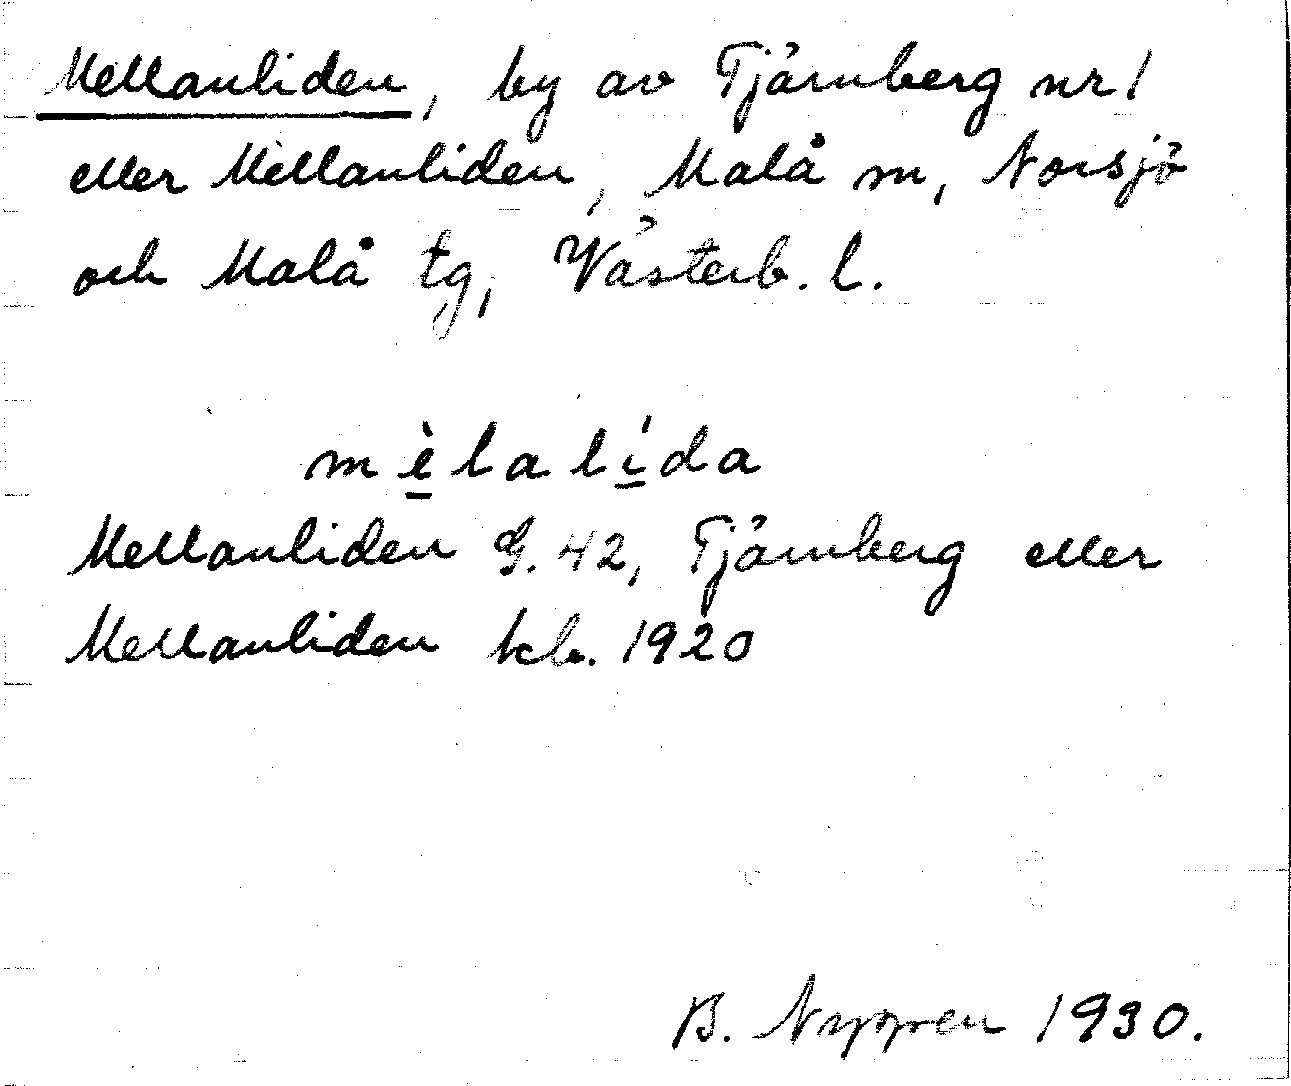 Mellanliden, by av Tjärnberg nr 1
eller Mellanliden, Malå sn, Norsjö
och Malå tg, Västerb. l.
mèlalída
Mellanliden G. 42, Tjärnberg eller
Mellanliden kb. 1920
B. 1930.